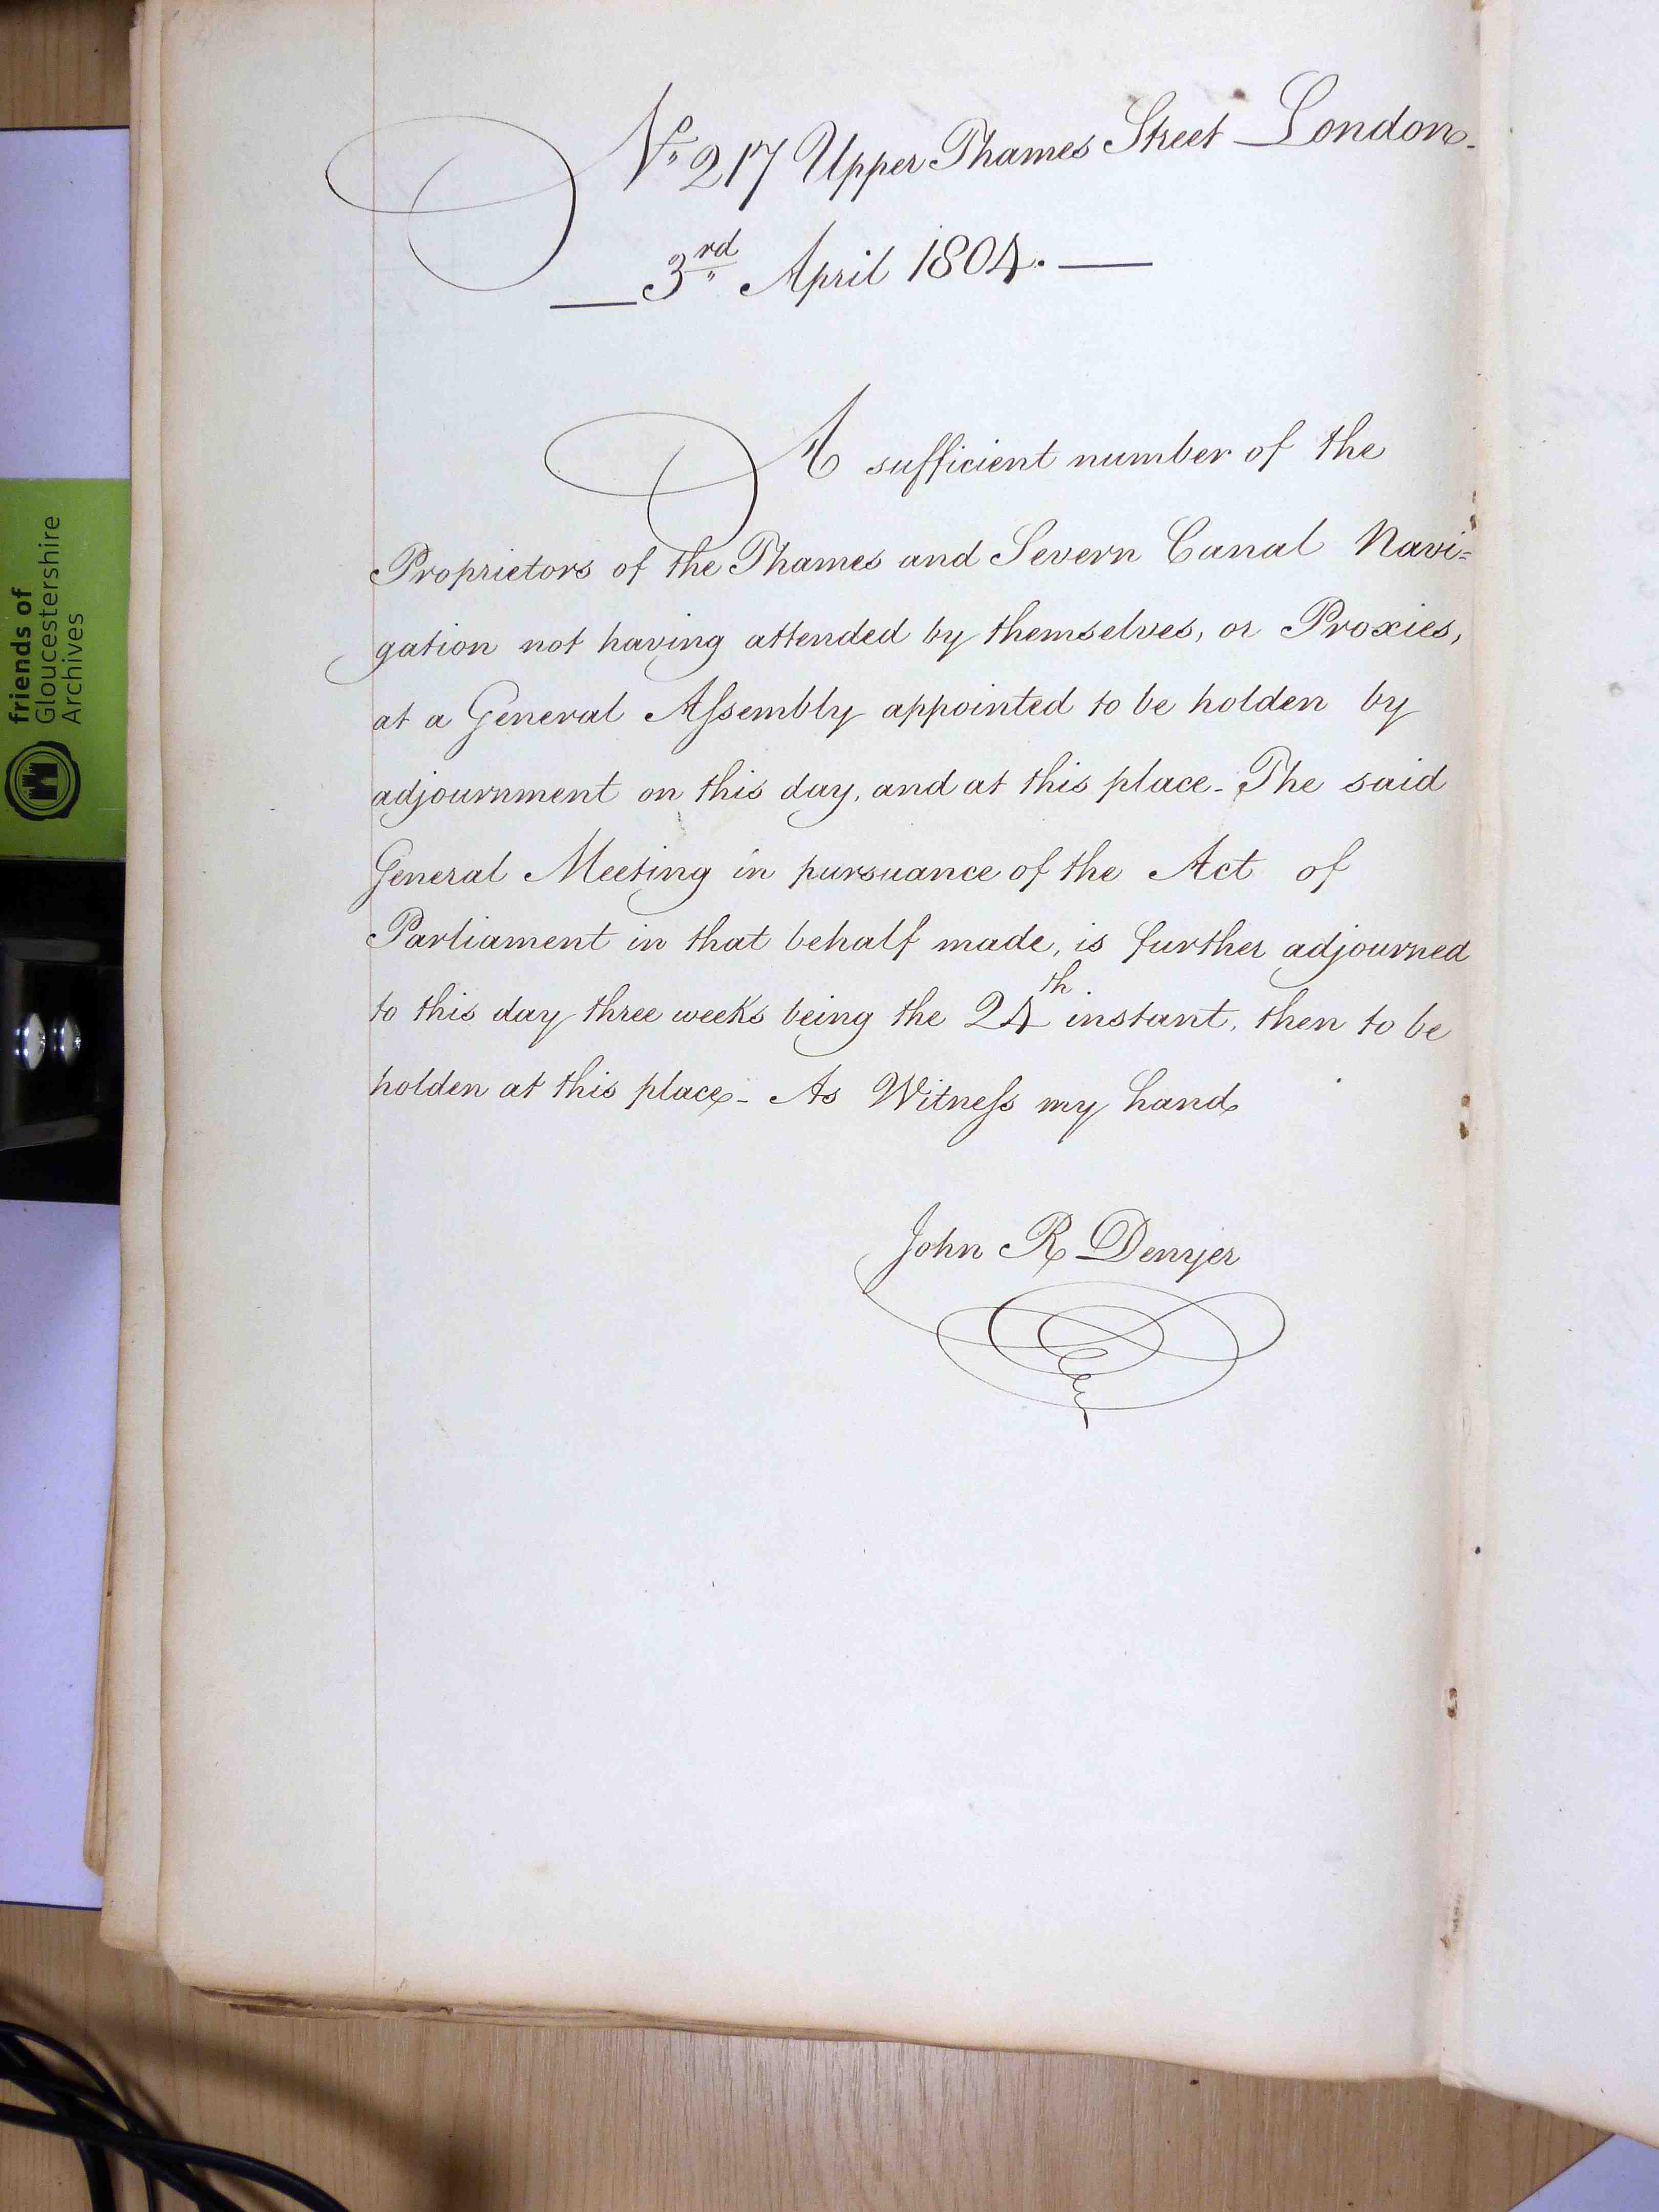 No. 217 Upper Thames Street London.
3rd April 1804.
A sufficient number of the
Proprietors of the Thames and Severn Canal Navi=
gation not having attended by themselves, or Proxies,
at a General Aſsembly appointed to be holden by
adjournment on this day, and at this place - The said
General Meeting in pursuance of the Act of
Parliament in that behalf made, is further adjourned
to this day three weeks being the 24th instant, then to be
holden at this place - As Witneſs my hand
John R Denyer
friends of
Gloucestershire
Archives